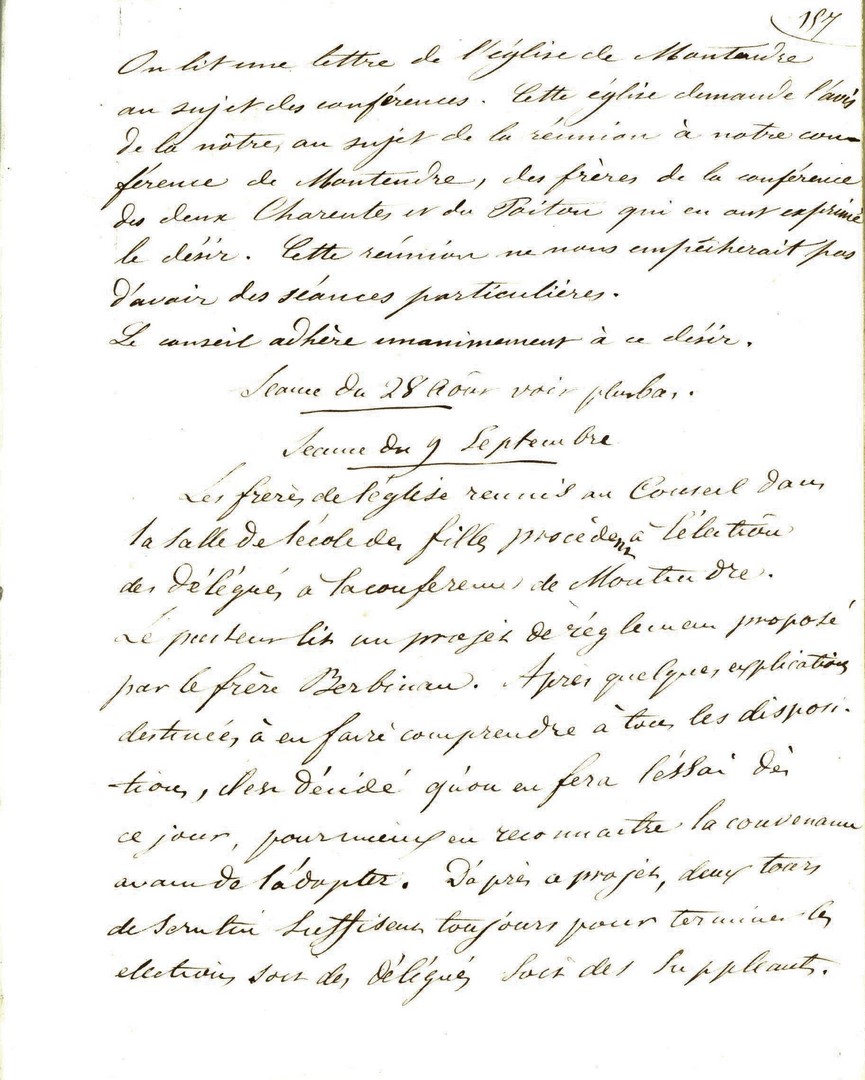 157
On lit une lettre de l'église de Montendre
au sujet des conférences. Cette église demande l'avis
de la nôtre, au sujet de la réunion à notre con-
férence de Montendre, des frères de la conférence
des deux Charentes et du Poitou qui en ont exprimé
le désir. Cette réunion ne nous empêcherait pas
d'avoir des séances particulières.
Le conseil adhère unanimement à ce désir.
Seance du 28 Août voir plus bas.
Seance du 9 Septembre
Les freres de l'église reunis au Conseil dans
la salle de l'école des filles procèdent à l'élection
des délégués à la conference de Montendre.
Le pasteur lit un projet de règlement proposé
par le frère Berbineau. Après quelques explications
destinées à en faire comprendre à tous les disposi-
tions, il est décidé qu'on en fera l'essai dès
ce jour, pour mieux en reconnaitre la convenance
avant de l'adopter. D'après ce projet, deux tours
de scrutin suffisent toujours pour terminer les
elections soit des délégués soit des suppleants.